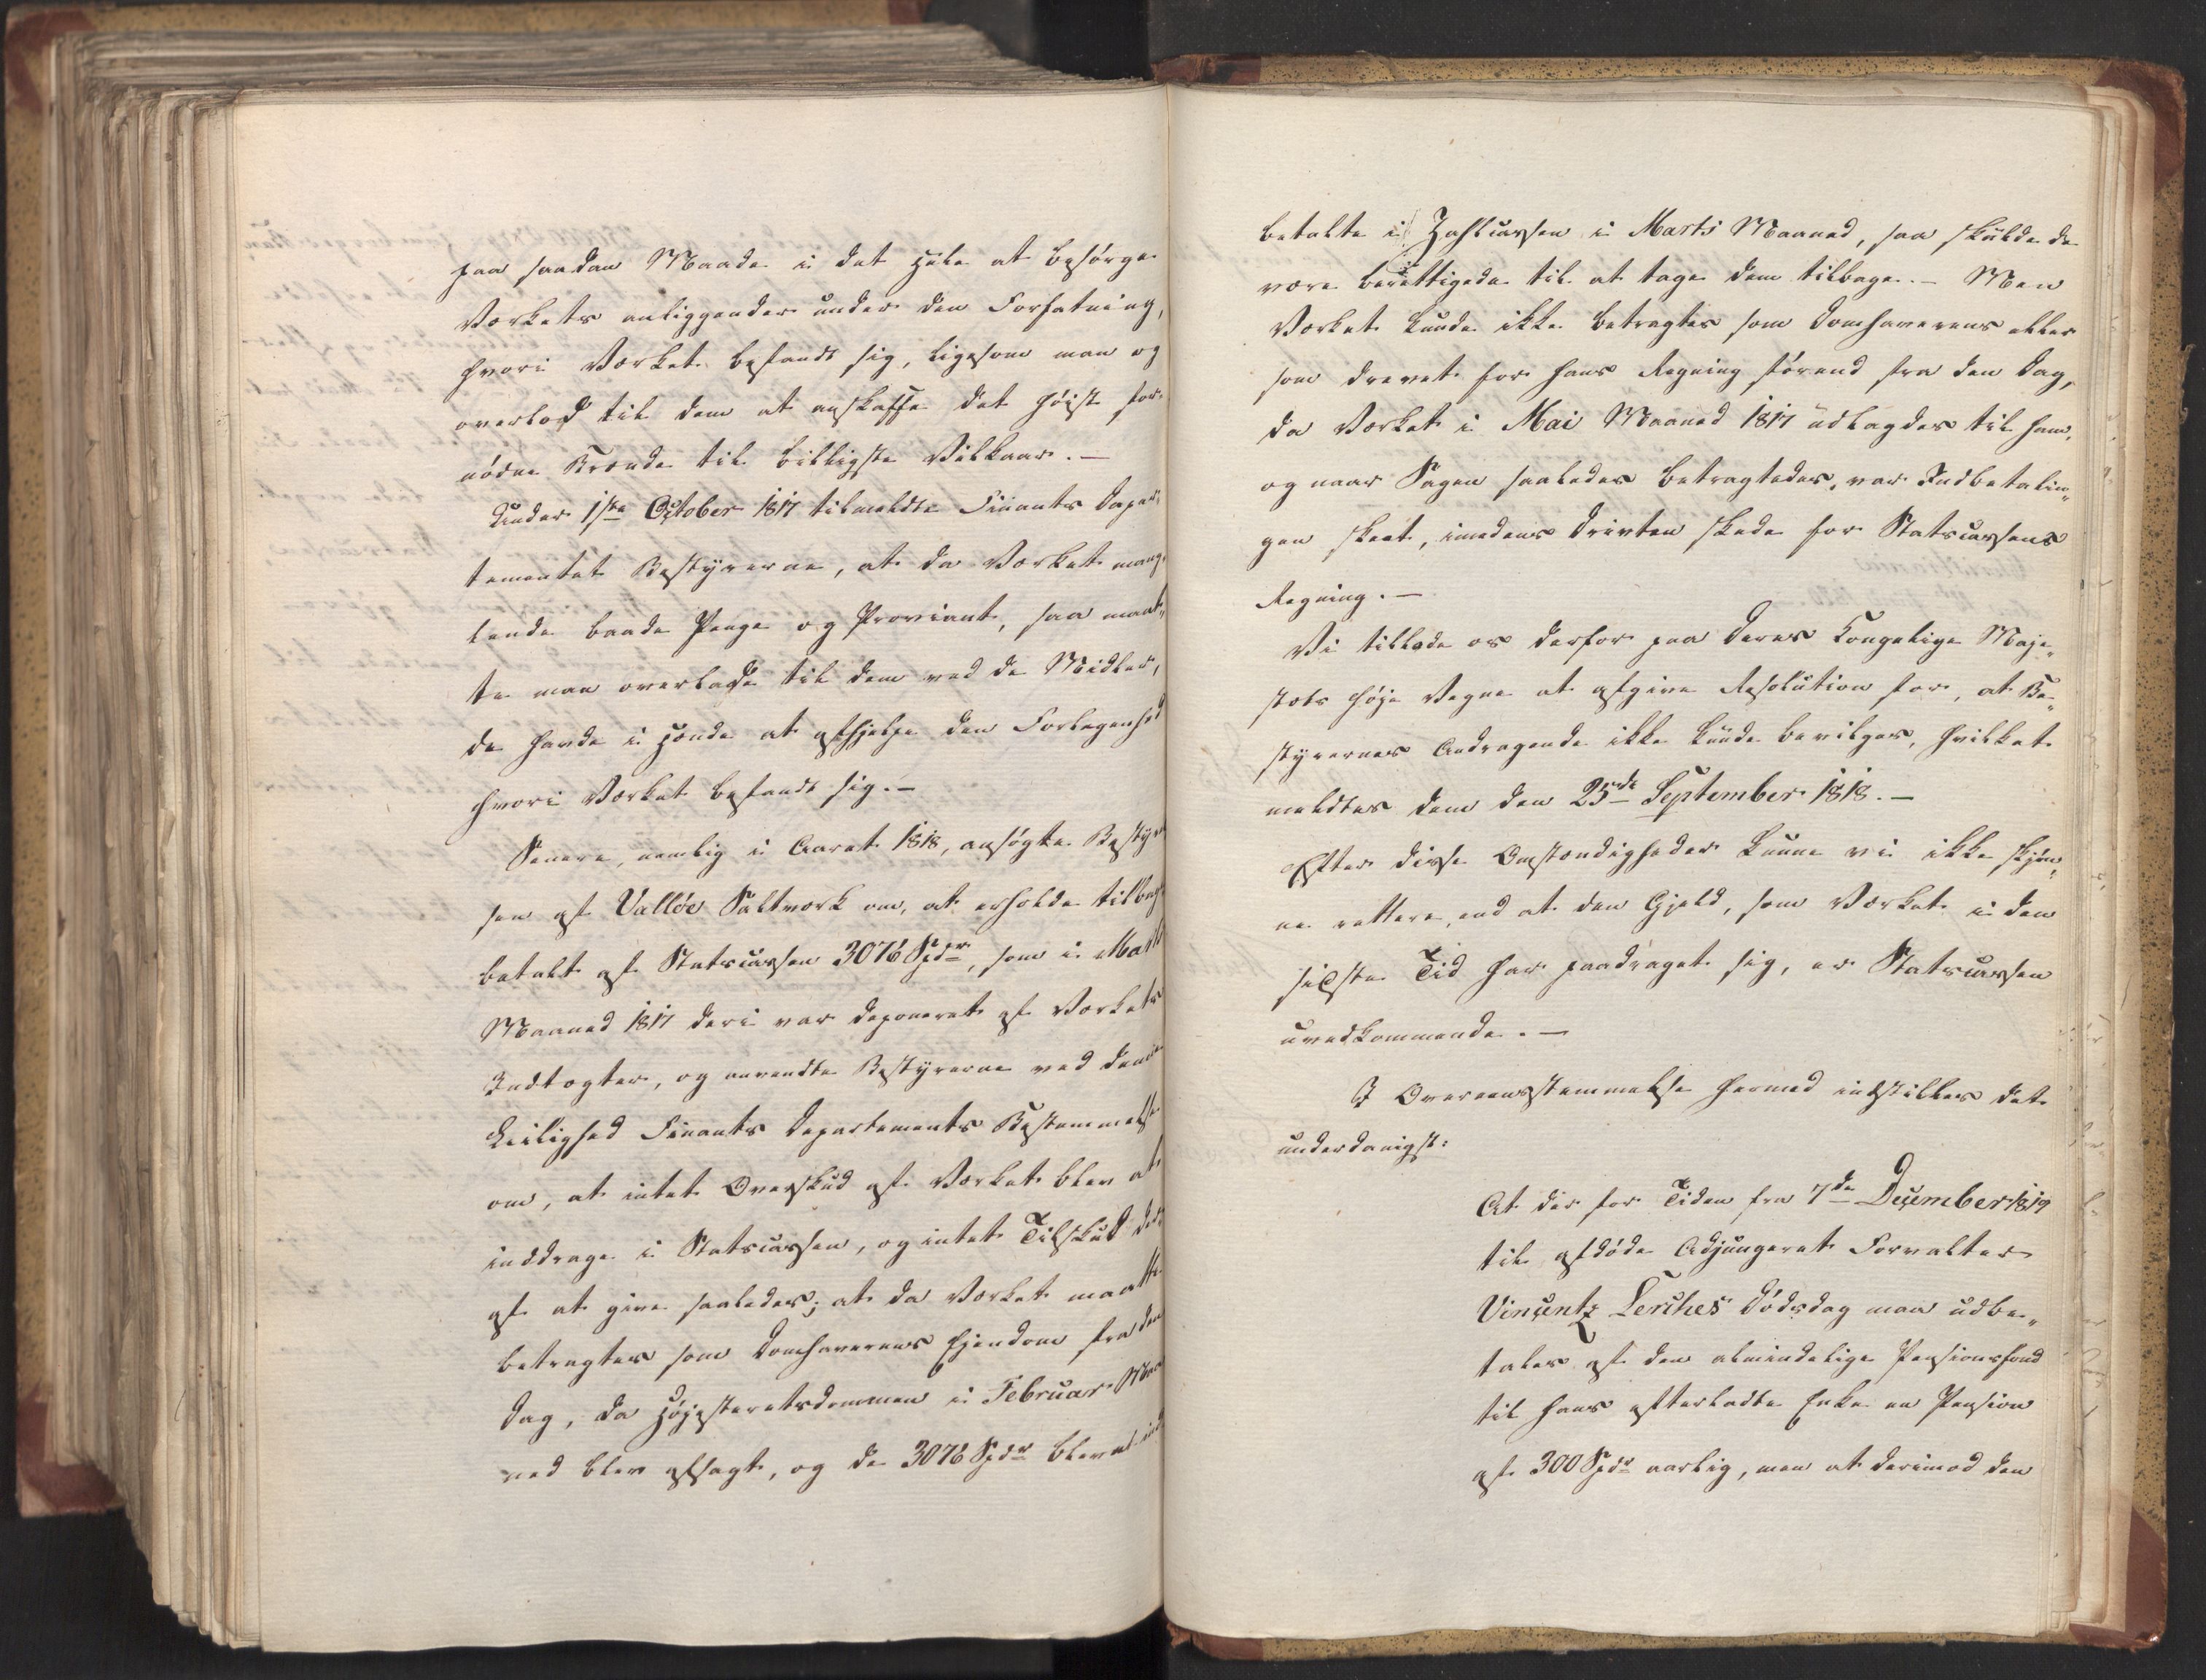 paa saadan Maade i det Hele at besørge
Værkets anliggender under den Forfatning,
hvori Værket befandt sig, ligesom man og
overlod til dem at anskaffe det høist for-
nødne Brænde til billigste Vilkaar. —
Under 1ste October 1817 tilmeldte Finants Depar-
tementet Bestyrerne, at da Værket mang-
lende baade Penge og Proviant, saa maat„
te man overlade til dem ved de Midler,
de havde i Hænde at afhjelpe den Forlegenhed
hvori Værket befandt sig. —
Senere, nemlig i Aaret 1818, ansøgte Besty
sen af Valløe Saltværk om, at erholde tilbage
betalt af Statscassen 3076 Spdr, som i Marts
Maaned 1817 deri var deponeret af Værkets
Indtægter, og anvendte Bestyrerne ved denne
Leilighed Finants Departements Bestemmelse
om, at intet Overskud af Værket blev at
inddrage i Statscassen, og intet Tilskud der
af at give saaledes; at da Værket maatte
betragtes som Domhaverens Eiendom fra den
Dag, da Høiesteretsdommen i Februar Maa
ned blev afsagt, og de 3076 Spdr bleve ind
betalte i Zahlcassen i Marts Maaned, saa skulde de
være berettigede til at tage dem tilbage. — Men
Værket kunde ikke betragtes som Domhaverens eller
som drevet for hans Regning førend fra den Dag,
da Værket i Mai Maaned 1817 udlagdes til ham,
og naar Sagen saaledes betragtedes, var Indbetalin„
gen skeet, imedens Driften skede for Statscassens
Regning. —
Vi tillode os derfor paa Deres Kongelige Maje„
stæts høje Vegne at afgive Resolution for, at Be„
styrernes Andragende ikke kunde bevilges, hvilket
meldtes dem den 25de September 1818. —
Efter disse Omstændigheder kunne vi ikke skjøn„
ne rettere, end at den Gjeld, som Værket i den
sidste Tid har paadraget sig, er Statscassen
uvedkommende. —
I Overeensstemmelse hermed indstilles det
underdanigst:
At der for Tiden fra 7de December 1819
til afdøde Adjungeret Forvalter
Vincentz Lerches Dødsdag maa udbe„
tales af den almindelige Pensionsfond
til hans efterladte Enke en Pension
af 300 Spdr aarlig, men at derimod den